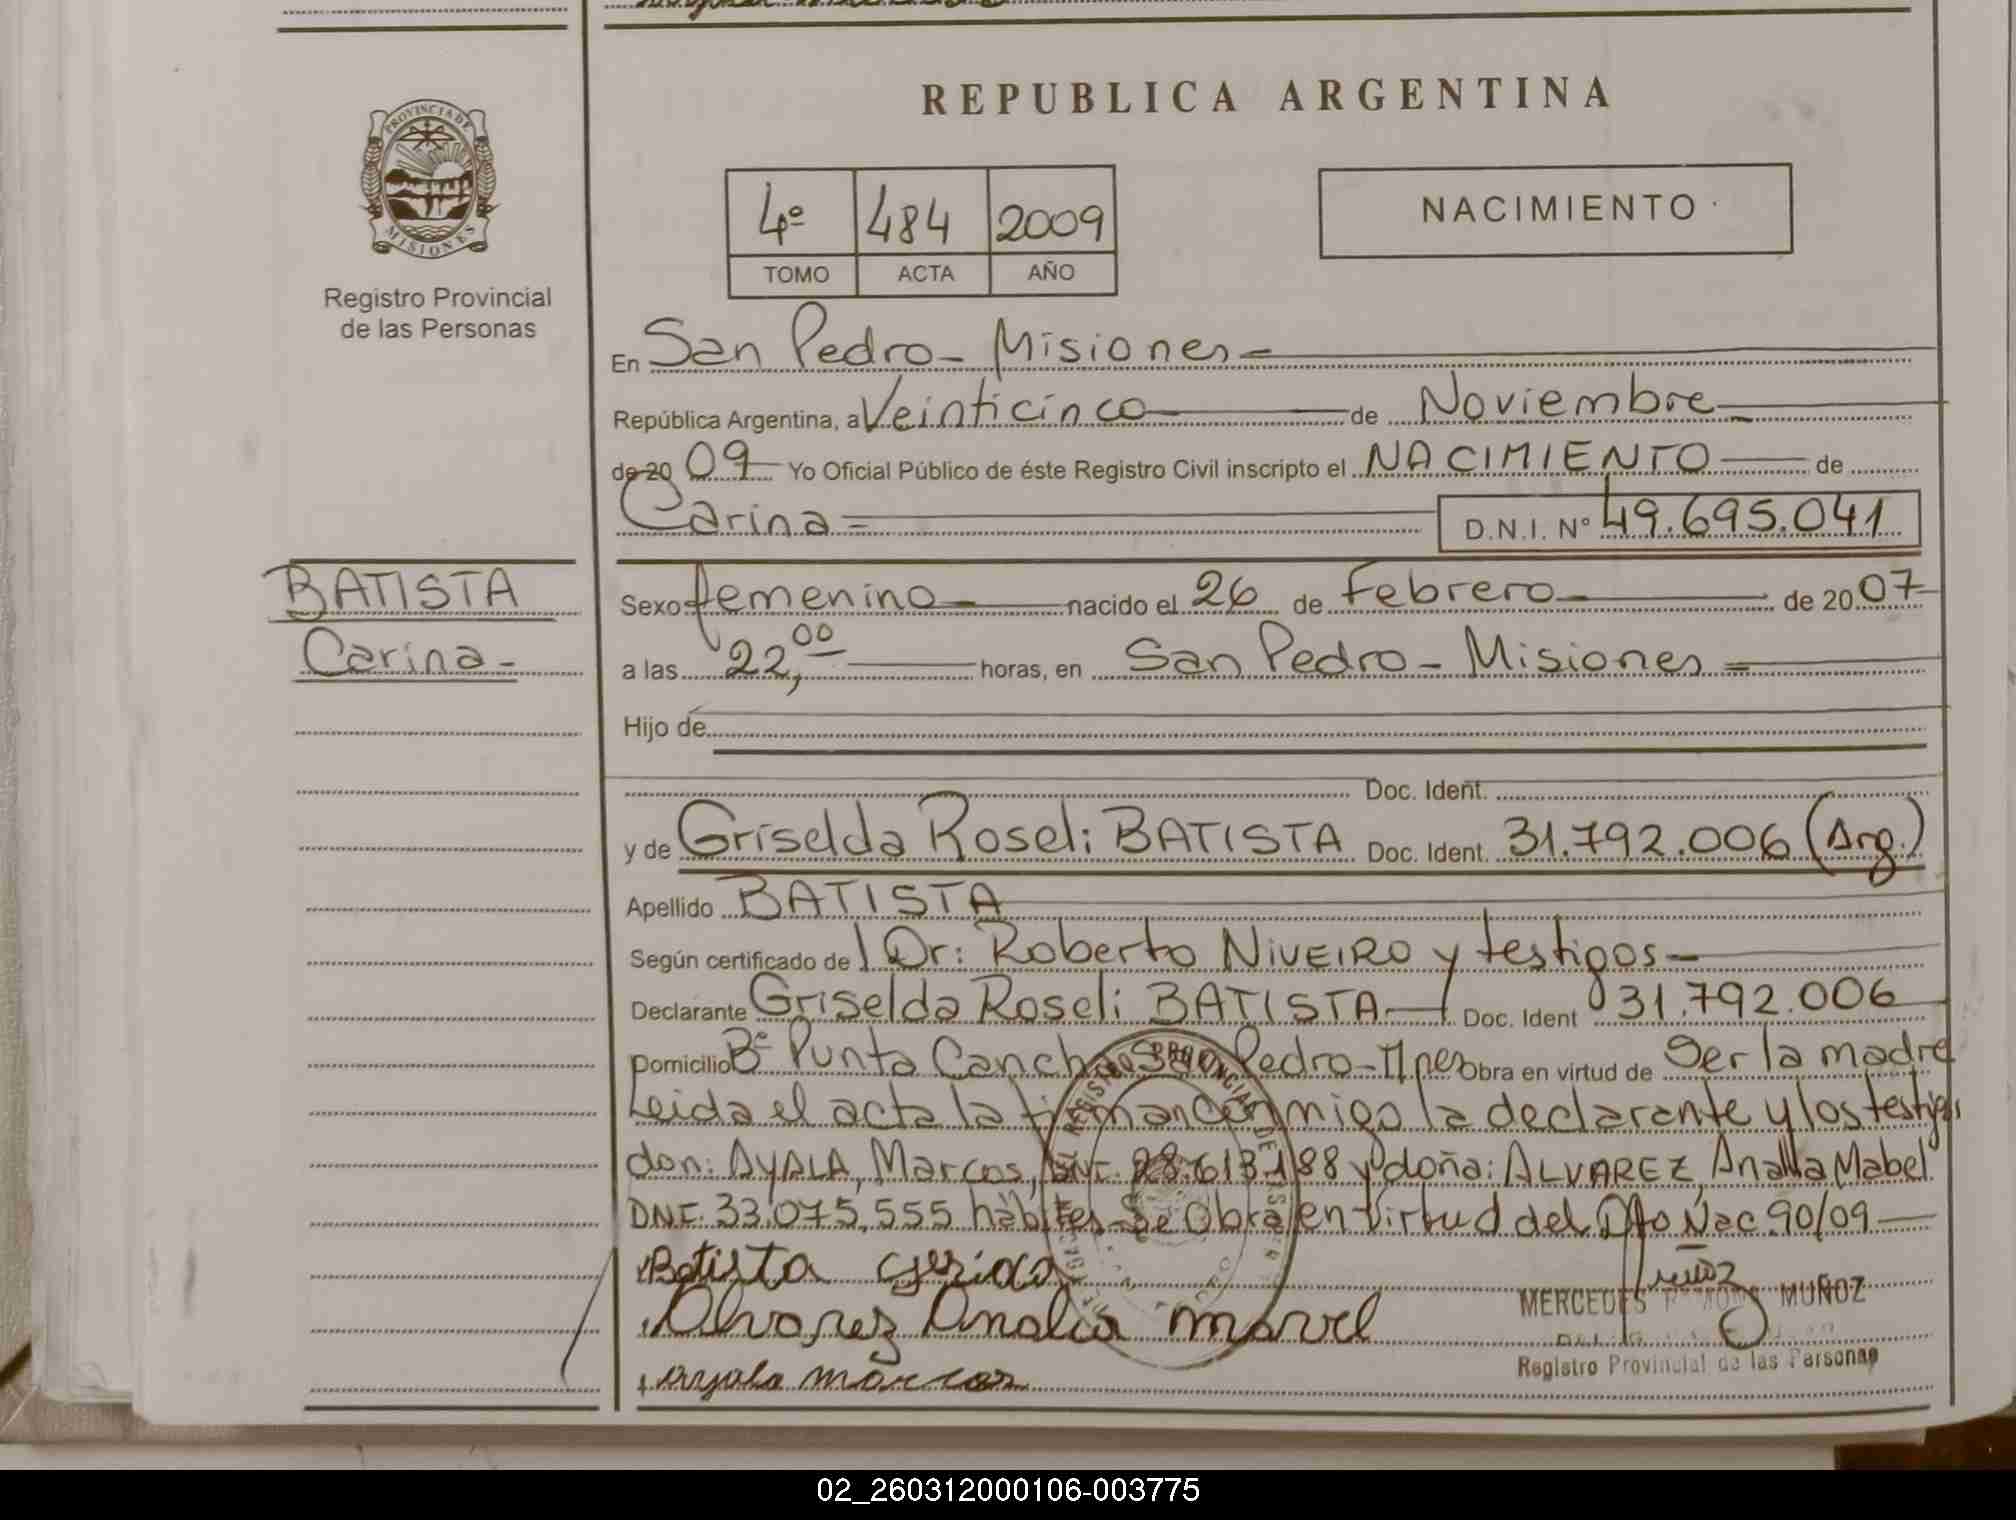 REPUBLICA ARGENTINA
PROVINCIA DE
MISIONES
Registro Provincial
de las Personas
4º 484 2009
TOMO ACTA AÑO
NACIMIENTO
En San Pedro - Misiones
República Argentina, a Veinticinco de Noviembre
de 20 09 Yo Oficial Público de éste Registro Civil inscripto el NACIMIENTO de
Carina D.N.I. Nº 49.695.041
BATISTA
Carina
Sexo femenino nacido el 26 de Febrero de 20 07
a las 22,00 horas, en San Pedro - Misiones
Hijo de
Doc. Ident.
y de Griselda Roseli BATISTA Doc. Ident. 31.792.006 (Arg.)
Apellido BATISTA
Según certificado de l Dr: Roberto NIVEIRO y testigos
Declarante Griselda Roseli BATISTA Doc. Ident 31.792.006
Domicilio Bº Punta Cancha San Pedro - Mnes Obra en virtud de Ser la madre
Leida el acta la firman conmigo la declarante y los testigos
don: AYALA, Marcos, DNI. 28.613.188 y doña: ALVAREZ, Analia Mabel
DNI. 33.075.555 hábiles - Se Obra en virtud del Dto Nac. 90/09
Batista
Alvarez Analia Mavel
Ayala Marcos
MERCEDES MUÑOZ
Registro Provincial de las Personas
02_260312000106-003775